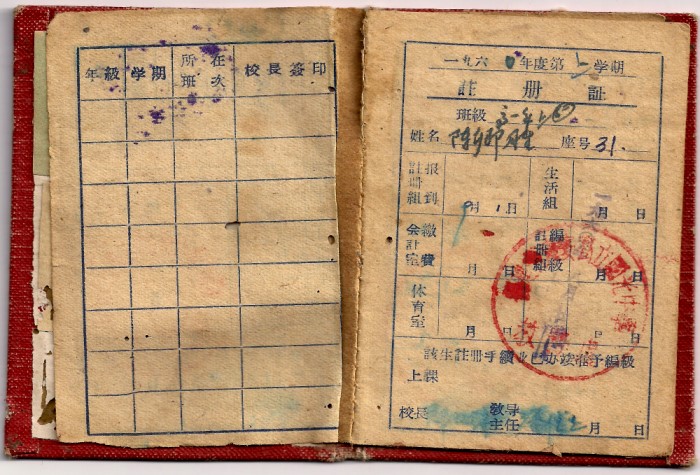 年級 学期 所在班次 校長簽印
一九六〇年度第上学期
註册証
班級 高一年上
姓名 陈 座号 31.
註册組 报到 月1日 生活組 月 日
会計室 繳費 月 日 註册組 編級 月 日
体育室 月 日 月 日
該生註册手續业已办竣准予編級
上課
校長 教导主任 月 日